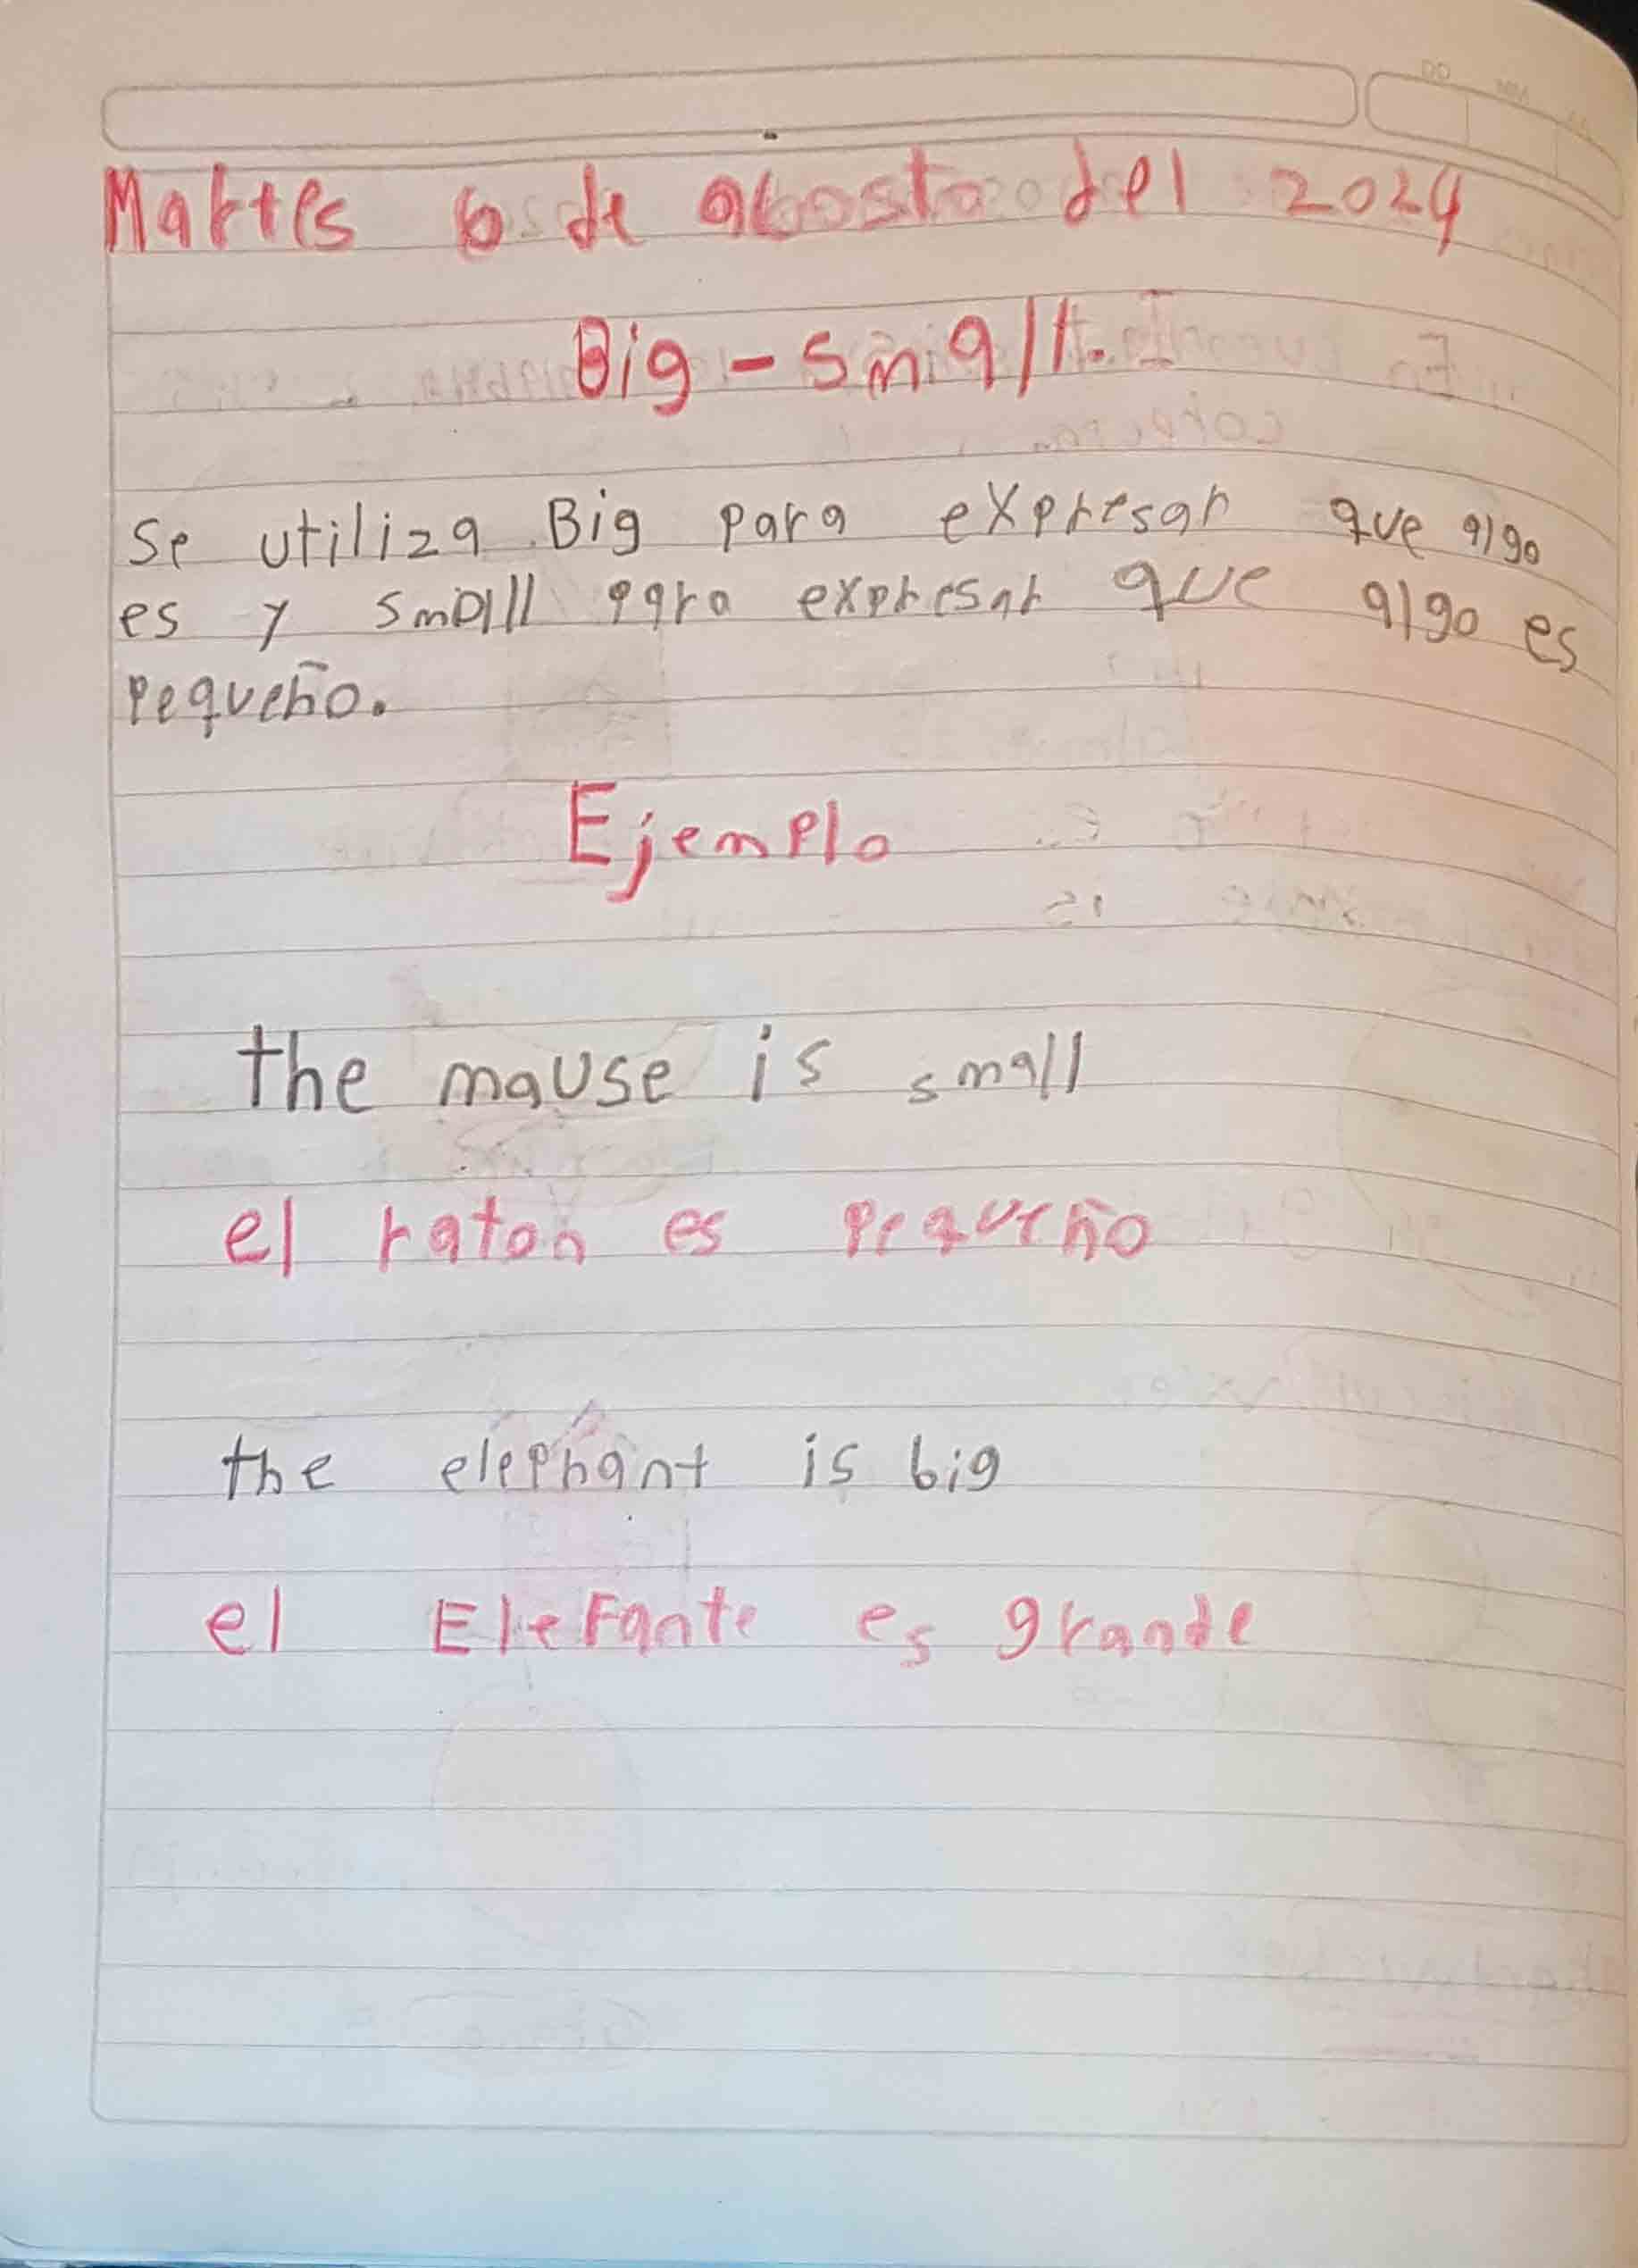 Martes 6 de agosto del 2024
Big - small.
Se utiliza Big para expresar que algo
es y small para expresar que algo es
pequeño.
Ejemplo
the mause is small
el raton es pequeño
the elephant is big
el Elefante es grande